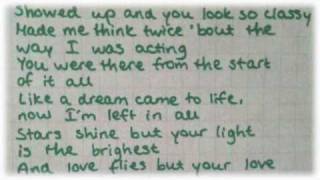 Showed up and you look so classy
Made me think twice 'bout the
way I was acting
You were there from the start
of it all
Like a dream came to life,
now I'm left in all
Stars shine but your light
is the brighest
And love flies but your love